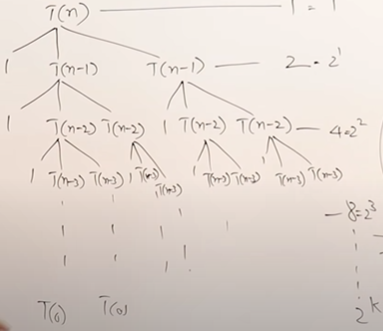 T(n) 1 = 1
1 T(n-1) T(n-1) 2 = 2^1
1 T(n-2) T(n-2) 1 T(n-2) T(n-2) 4 = 2^2
1 T(n-3) T(n-3) 1 T(n-3) T(n-3) 1 T(n-3) T(n-3) 1 T(n-3) T(n-3)
8 = 2^3
2^k
T(0) T(0)